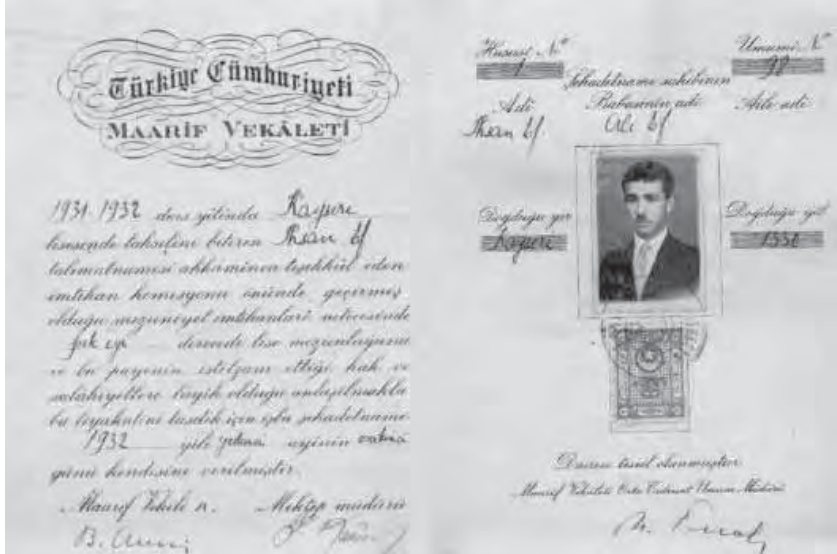 Türkiye Cümhuriyeti
MAARİF VEKÂLETİ
1931-1932 ders yılında Kayseri
lisesinde tahsilini bitiren İhsan Ef
talimatnamesi ahkâmınca teşekkül eden
imtihan komisyonu önünde geçirmiş
olduğu mezuniyet imtihanları neticesinde
pek eyi derecede lise mezunluğunu
ve bu payenin istilzam ettiği hak ve
salâhiyetlere lâyik olduğu anlaşılmakla
bu liyakatini tasdik için işbu şehadetname
1932 yılı ayinin
günü kendisine verilmiştir.
Maarif Vekili n. Mektep müdürü
Hususî No Umumî No
1 98
Şehadetname sahibinin
Adi Babasının adi Aile adi
İhsan Ef. Ali Ef
Doğduğu yer Doğduğu yıl
Kayseri
Dairesi tescil olunmuştur
Maarif Vekâleti Orta Tedrisat Umum Müdürü